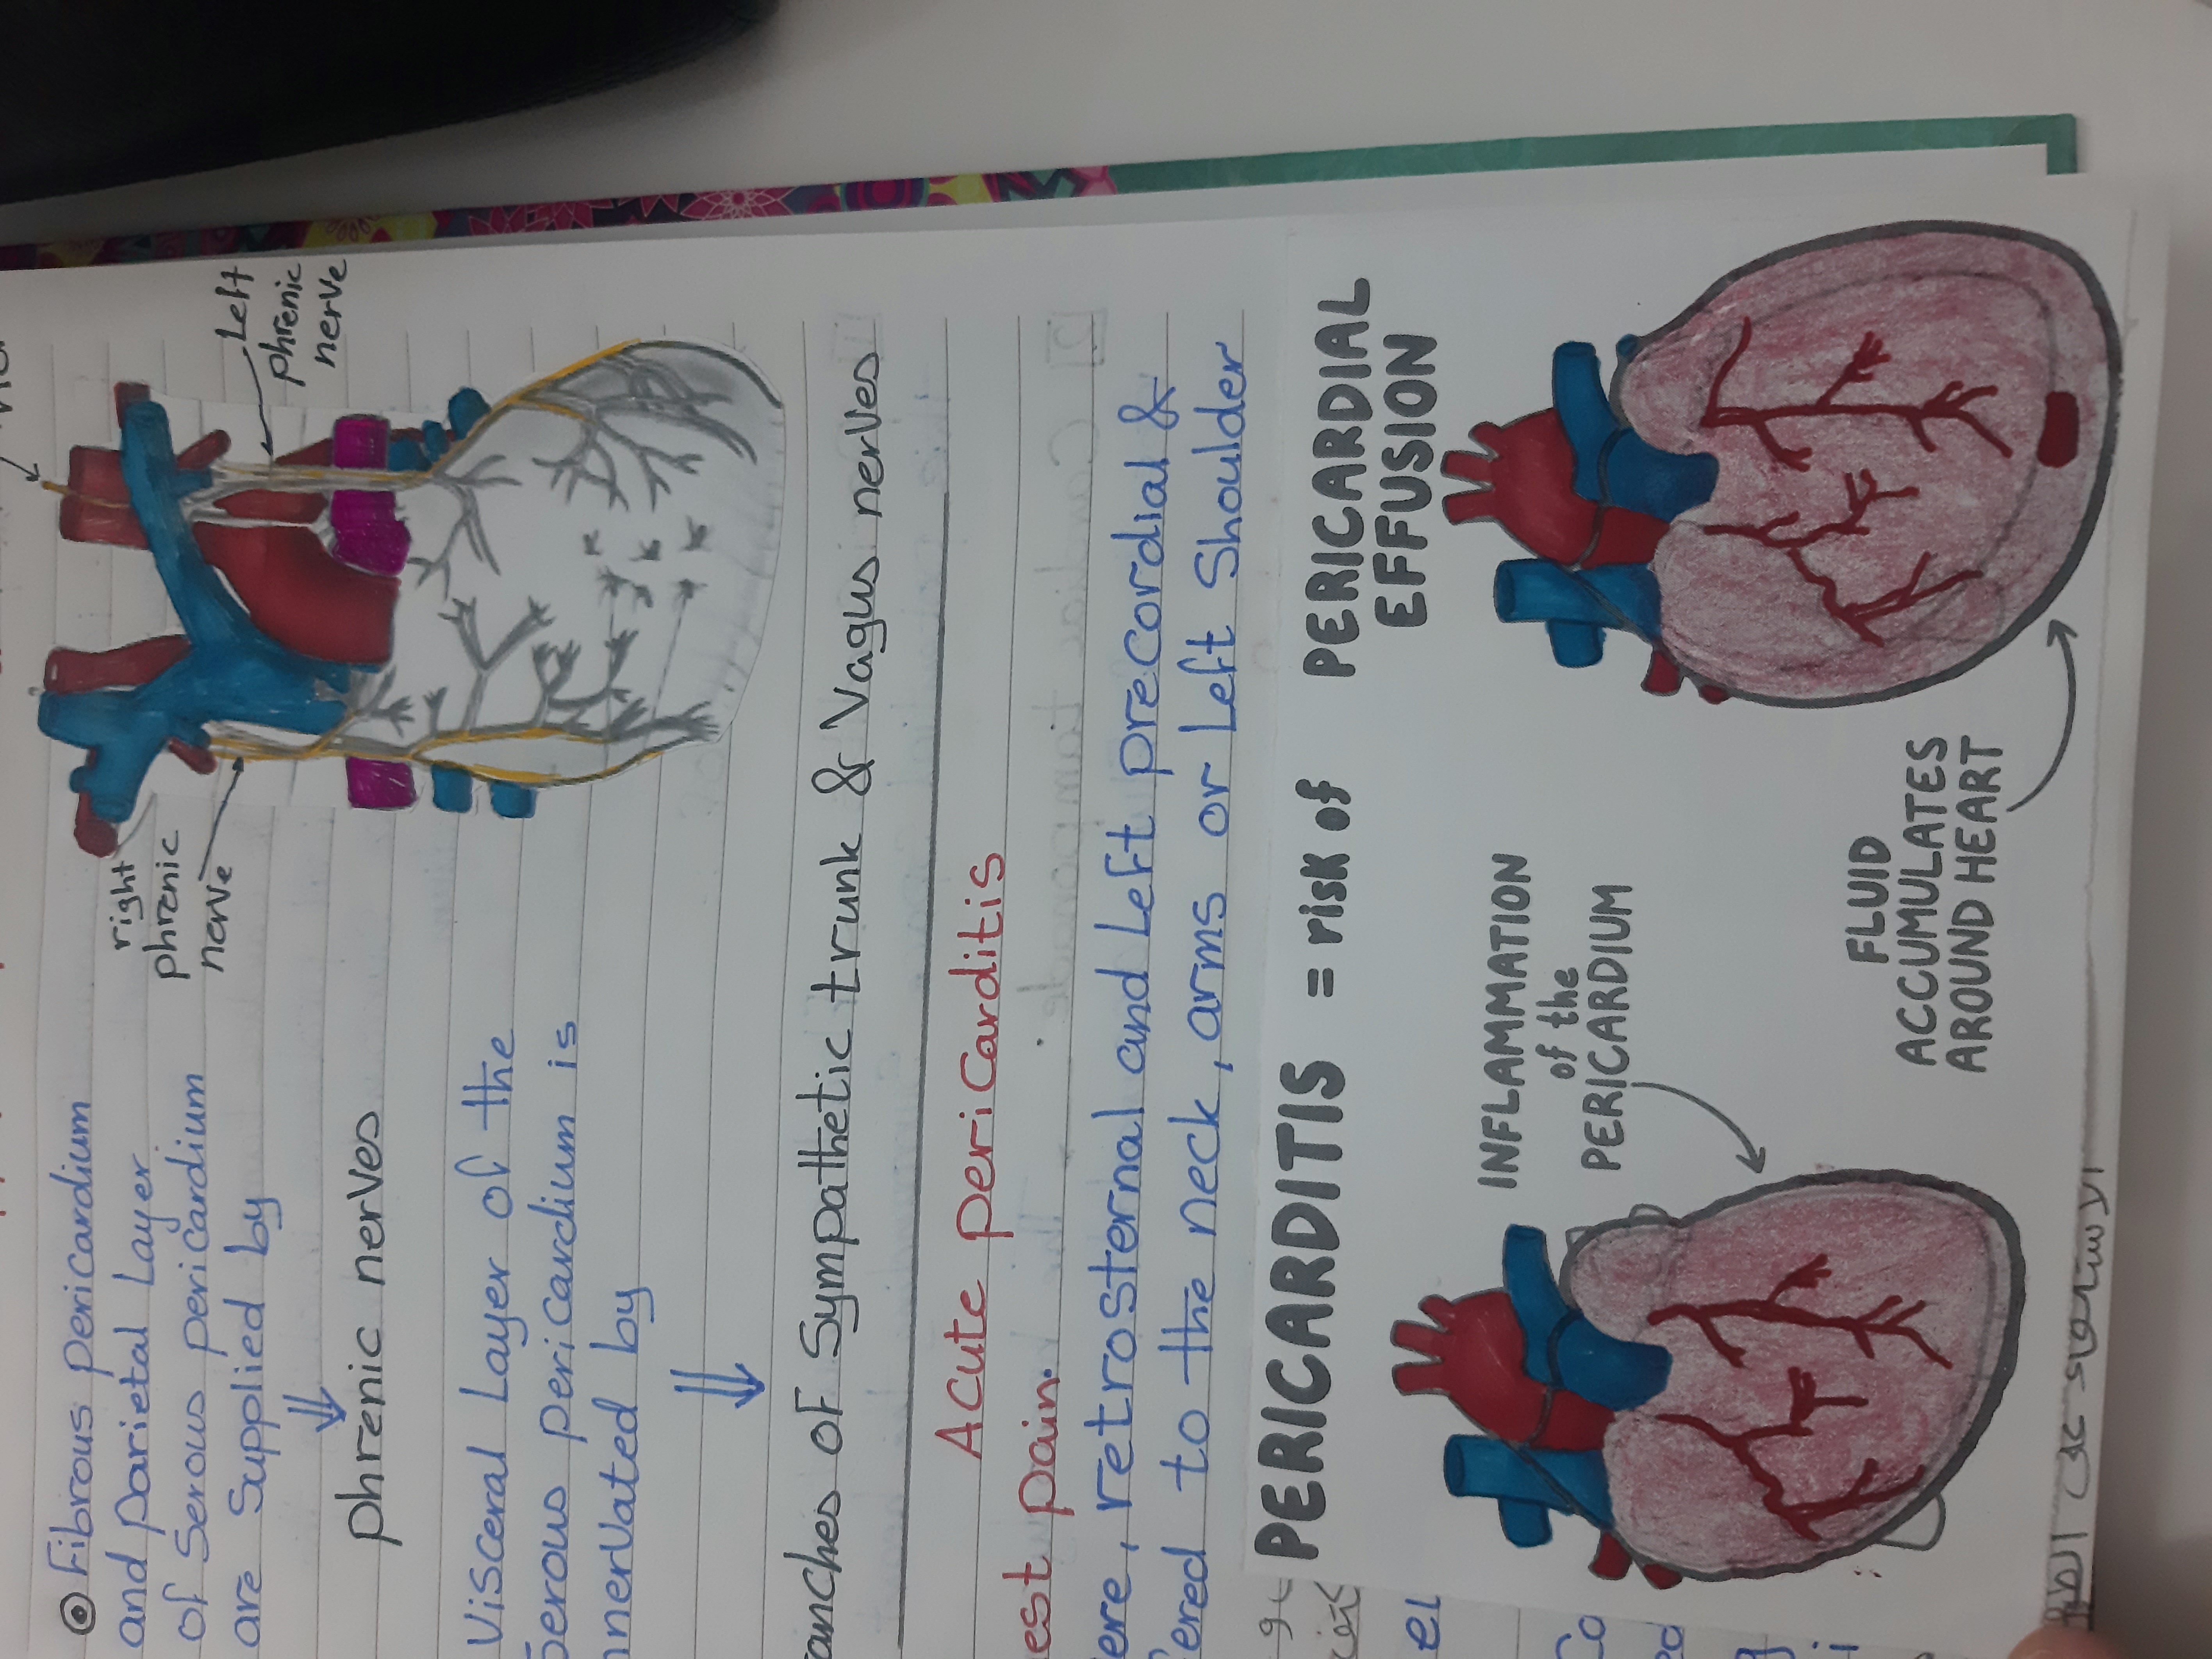 Left
phrenic
nerve
right
phrenic
nerve
Fibrous pericardium
and parietal Layer
of Serous pericardium
are Supplied by
phrenic nerves
Visceral Layer of the
Serous pericardium is
nnervated by
anches of Sympathetic trunk & Vagus nerves
Acute pericarditis
est pain.
ere, retrosternal and Left precordial &
ered to the neck, arms or Left Shoulder
PERICARDITIS = risk of PERICARDIAL
EFFUSION
INFLAMMATION
of the
PERICARDIUM
FLUID
ACCUMULATES
AROUND HEART